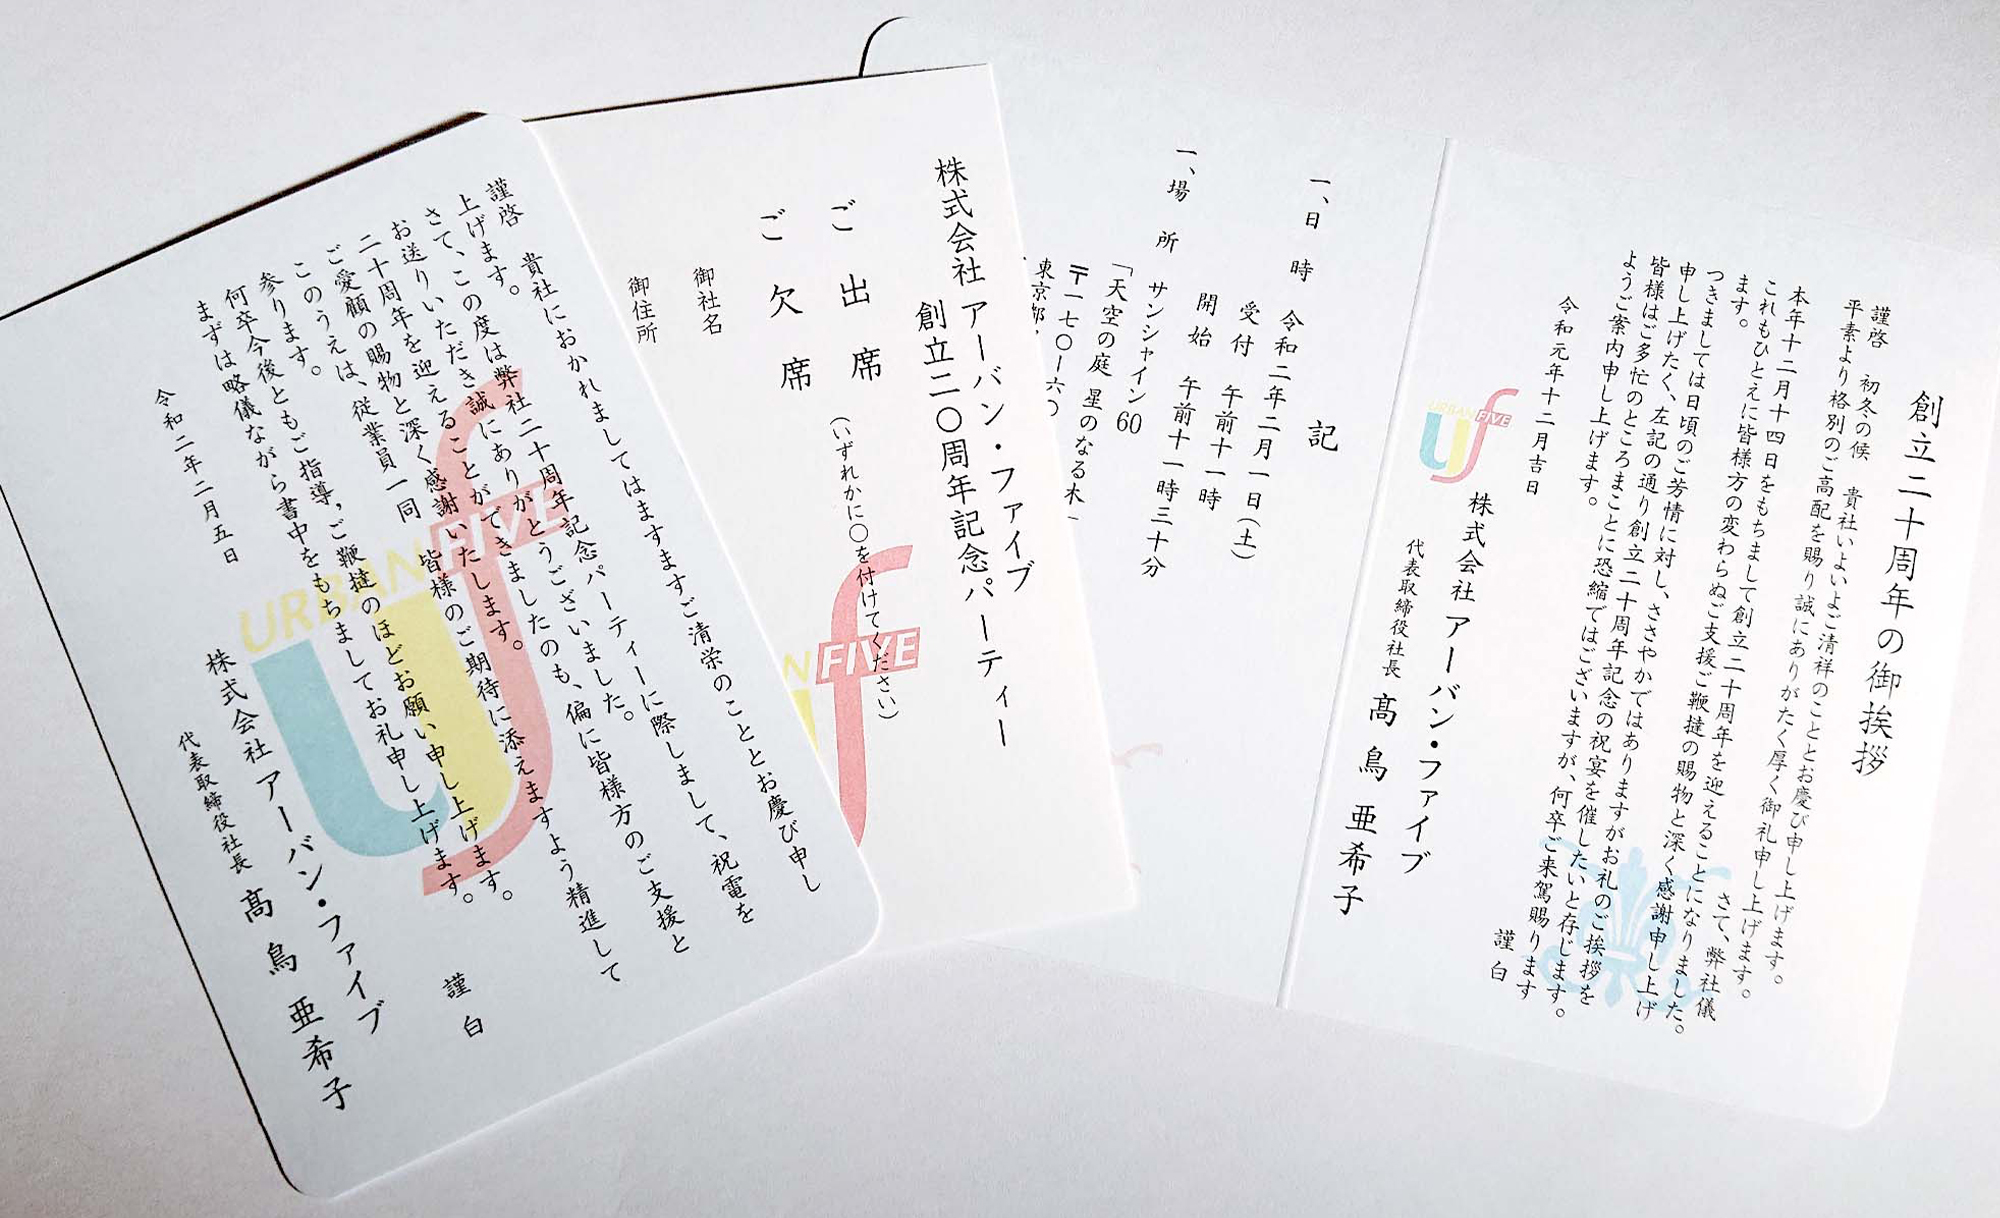 創立二十周年の御挨拶
謹啓　初冬の候　貴社いよいよご清祥のこととお慶び申し上げます。
平素より格別のご高配を賜り誠にありがたく厚く御礼申し上げます。
さて、弊社儀
本年十二月十四日をもちまして創立二十周年を迎えることになりました。
これもひとえに皆様方の変わらぬご支援ご鞭撻の賜物と深く感謝申し上げ
ます。
つきましては日頃のご芳情に対し、ささやかではありますがお礼のご挨拶を
申し上げたく、左記の通り創立二十周年記念の祝宴を催したいと存じます。
皆様はご多忙のところまことに恐縮ではございますが、何卒ご来駕賜ります
ようご案内申し上げます。
謹白
令和元年十二月吉日
URBAN FIVE
株式会社アーバン・ファイブ
代表取締役社長　髙鳥亜希子
記
一、日　時　令和二年二月一日(土)
受付　午前十一時
開始　午前十一時三十分
一、場　所　サンシャイン60
「天空の庭 星のなる木
〒一七〇ー六〇
東京都
株式会社アーバン・ファイブ
創立二〇周年記念パーティー
ご出席
(いずれかに〇を付けてください)
ご欠席
御社名
御住所
FIVE
謹啓　貴社におかれましてはますますご清栄のこととお慶び申し
上げます。
さて、この度は弊社二十周年記念パーティーに際しまして、祝電を
お送りいただき誠にありがとうございました。
二十周年を迎えることができましたのも、偏に皆様方のご支援と
ご愛顧の賜物と深く感謝いたします。
このうえは、従業員一同　皆様のご期待に添えますよう精進して
参ります。
何卒今後ともご指導，ご鞭撻のほどお願い申し上げます。
まずは略儀ながら書中をもちましてお礼申し上げます。
謹白
令和二年二月五日
株式会社アーバン・ファイブ
代表取締役社長　髙鳥亜希子
URBAN FIVE